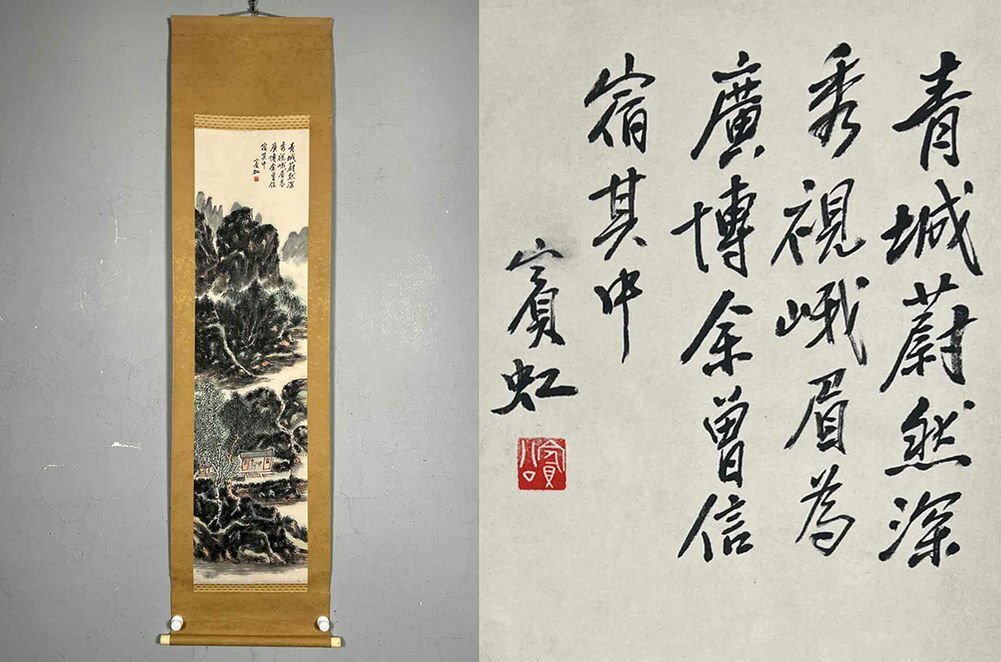 青城蔚然深
秀視峨眉為
廣博余曾信
宿其中
賓虹